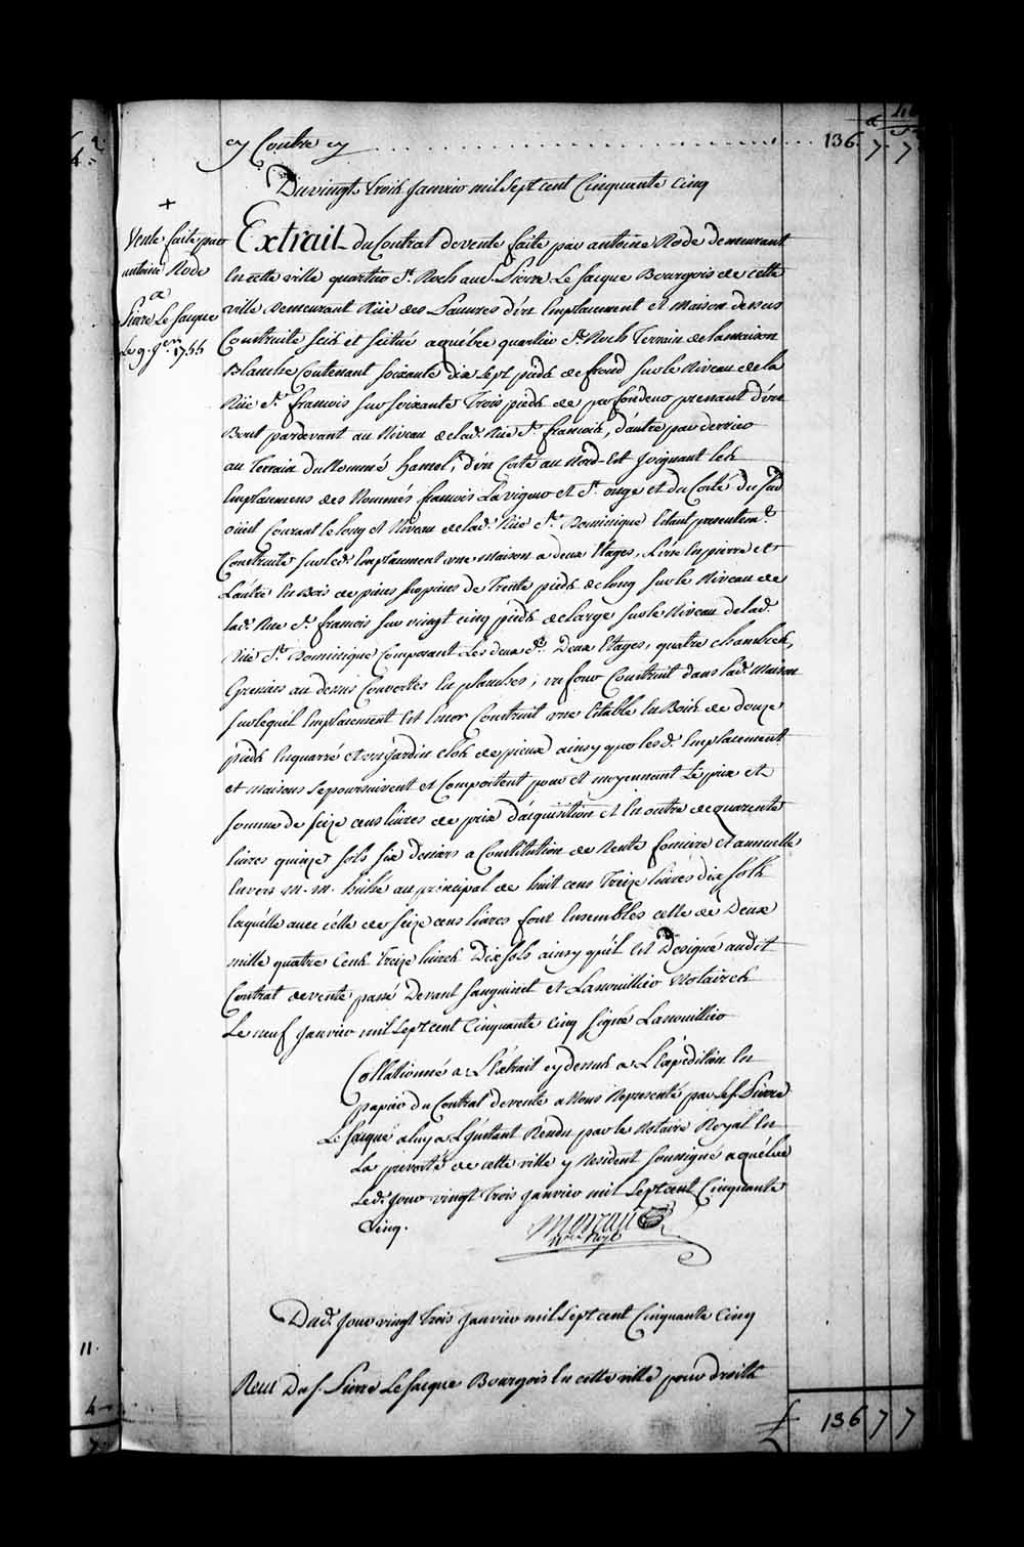 cy Contre cy ........ 136. 7. 7
Du vingt trois Janvier mil sept cent Cinquante Cinq
+
Vente faite par
antoine Rode
a
Pierre Le facque
Le 9. Jer. 1755
Extrait du Contrat de vente faite par antoine Rode demeurant
En cette ville quartier St. Roch au Sr. Pierre Le facque Bourgois de cette
ville demeurant Rüe des Pauvres d'un Emplacement et Maison dessus
Construite Sise et Scitué a québec quartier St. Roch Terrain de la maison
Blanche Contenant soixante dix sept pieds de froud sur le Niveau de la
Rüe St. francois sur soixante Trois pieds de profondeur prenant d'un
Bout pardevant au Niveau de lad. Rüe St. francois, d'autre par derriere
au Terrain du Nommé hamel, d'un Costé au Nord-Est Joignant les
Emplacemens des Nommés francois Lavigueur et St. onge et du Costé du Sud
ouest Courant le long et Niveau de lad. Rüe St. Dominique Estant presentemt.
Construite sur led. Emplacement une Maison a deux Etages, L'un En pierre et
L'autre En Bois de pieces sur pieces de Trente pieds de long sur le Niveau de
lad. Rue St. francois sur vingt cinq pieds de large sur le Niveau de lad.
Rüe St. Dominique Composant Les deux dt. Deux Etages, quatre chambres,
Greniers au dessus Couvertes En planches; un four Construit dans lad. Maison
sur lequel Emplacement Est Encor Construit une Etable En Bois de douze
pieds En quarré et un Jardin clos de pieux ainsy que lesd. Emplacement
et Maisons se poursuivent et Comportent pour et moyennant Le prix et
somme de seize cens livres de prix d'acquisition et En outre de quarente
livres quinze sols six deniers a Constitution de Rente fonciere et annuelle
Envers M. M. hiché au principal de huit cens Treize livres dix sols
laquelle avec celle de seize cens livres font Ensembles celle de Deux
mille quatre Cens Treize livres Dix sols ainsy qu'il Est Designé audit
Contrat de vente passé Devant Sanguinet et Lanouillier Notaires
Le neuf Janvier mil sept cent Cinquante Cinq signé Lanouillier
Collationné a: L'Extrait cy dessus a: L'Expedition En
papier du Contrat de vente a Nous Representé par le s. Pierre
Le facque a luy a L'instant Rendu par le Notaire Royal En
La prevosté de cette ville y Resident soussigné a québec
Led. Jour vingt Trois Janvier mil sept cent Cinquante
Cinq.
Moreau
Nre. Royl
Dud. Jour vingt Trois Janvier mil sept cent Cinquante Cinq
Receu Du s. Pierre Le facque Bourgois En cette ville pour droits
136 7 7
11.